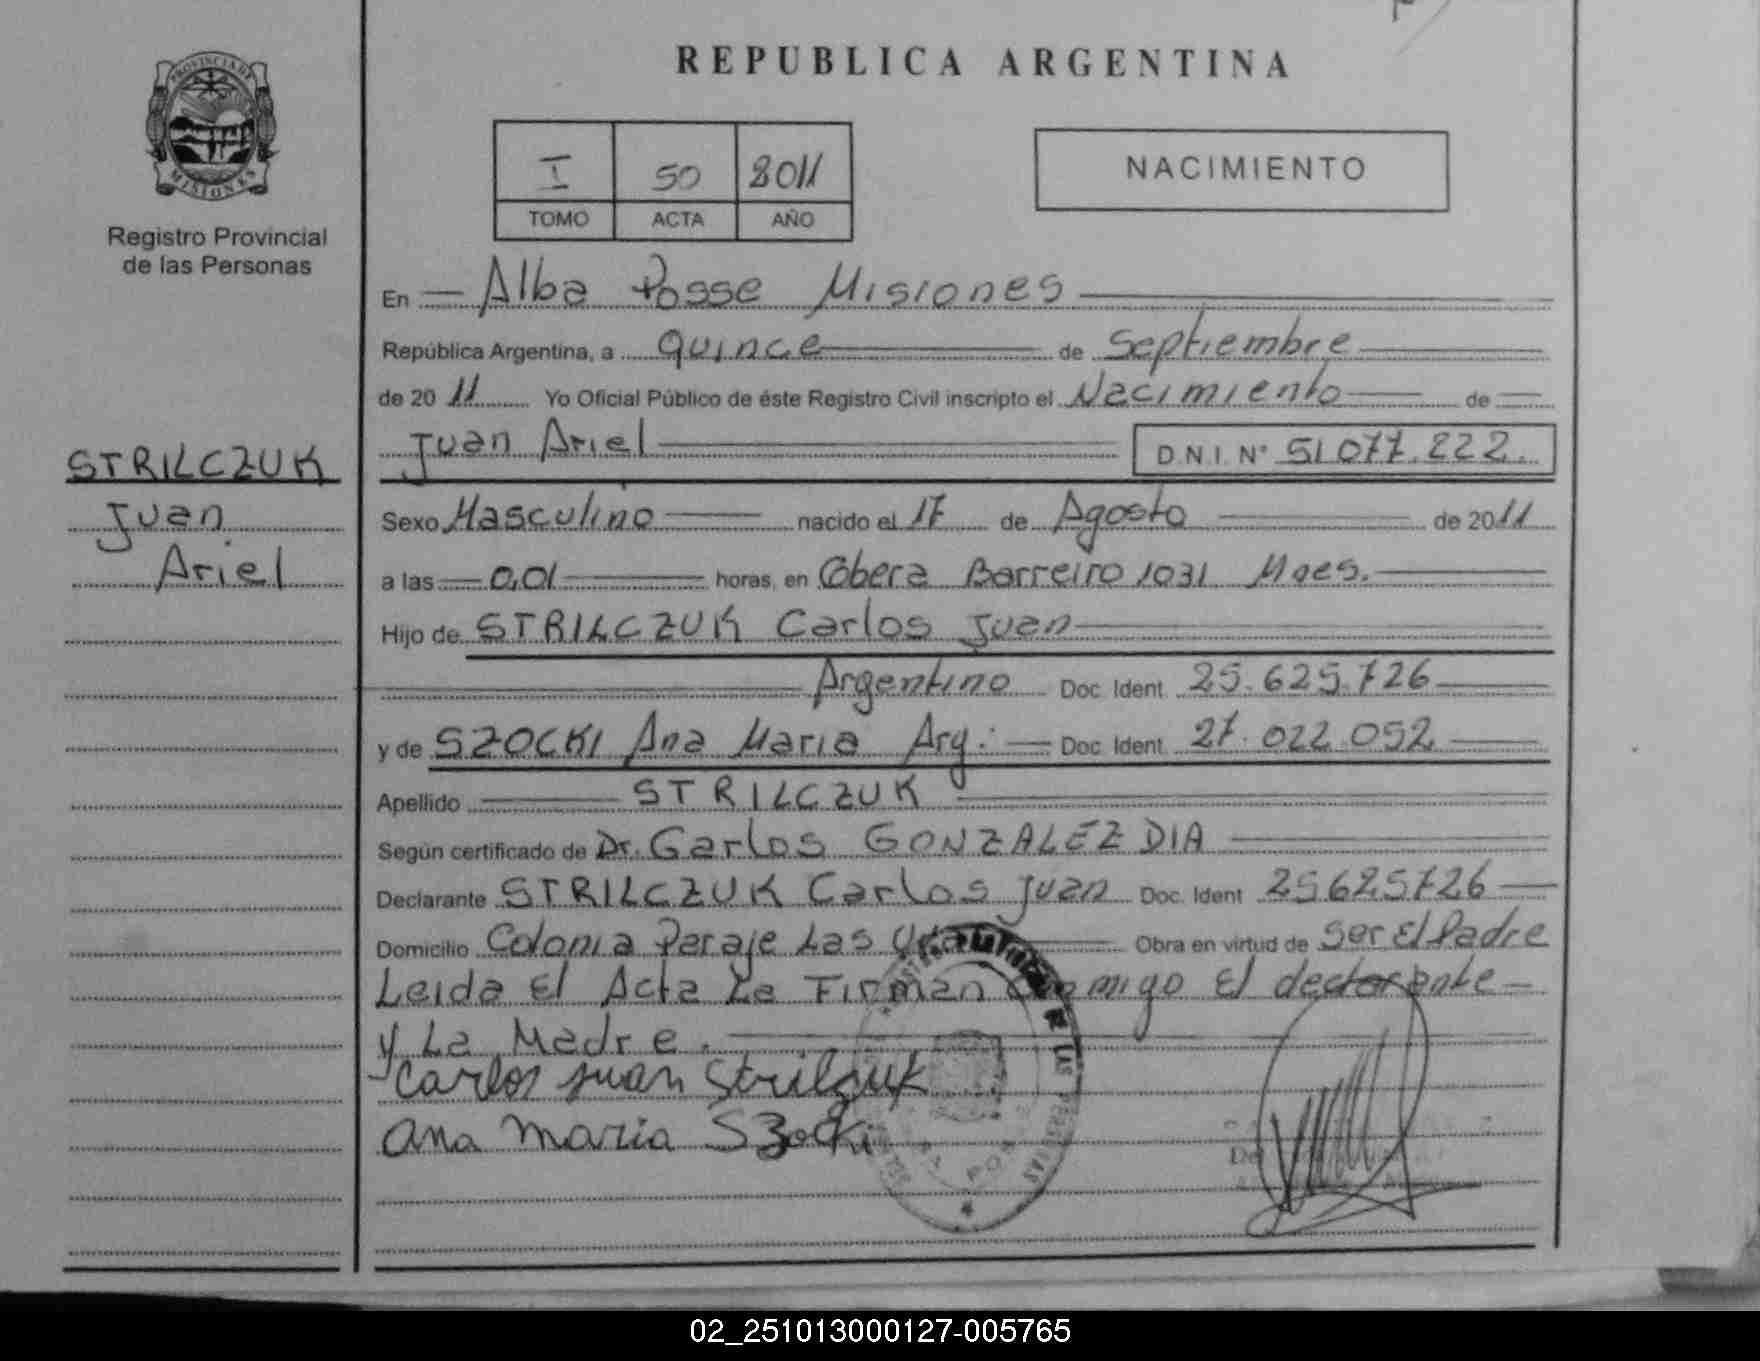 REPUBLICA ARGENTINA
PROVINCIA DE
MISIONES
Registro Provincial
de las Personas
I 50 2011
TOMO ACTA AÑO
NACIMIENTO
En Alba Posse Misiones
República Argentina, a quince de Septiembre
de 2011 Yo Oficial Público de éste Registro Civil inscripto el Nacimiento de
Juan Ariel D.N.I. N° 51.077.222.
STRILCZUK
Juan
Ariel
Sexo Masculino nacido el 17 de Agosto de 2011
a las 0,01 horas, en Obera Barreiro 1031 Mnes.
Hijo de STRILCZUK Carlos Juan
Argentino Doc. Ident 25.625.726
y de SZOCKI Ana Maria Arg. Doc. Ident 27.022.052
Apellido STRILCZUK
Según certificado de Dr. Carlos GONZALEZ DIA
Declarante STRILCZUK Carlos Juan Doc. Ident 25625726
Domicilio Colonia Paraje Las Obra en virtud de Ser El Padre
Leida El Acta La Firman Conmigo El declarante
y La Madre.
Carlos Juan Strilczuk
Ana Maria Szocki
02_251013000127-005765